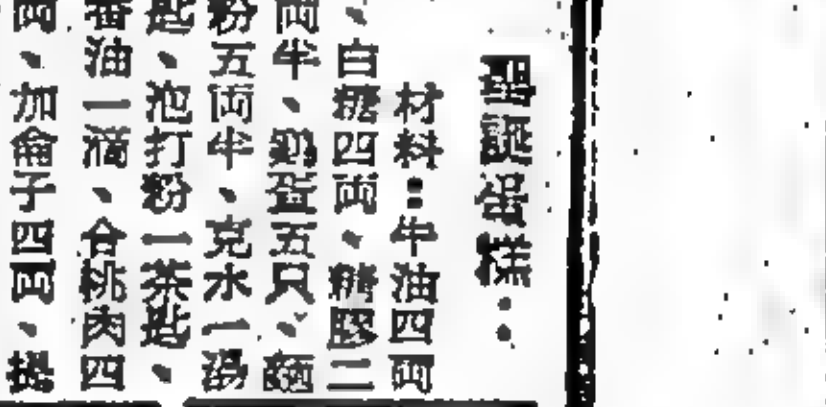 聖誕蛋糕：
材料：牛油四両
、白糖四両、糖膠二
両半、鷄蛋五只、麵
粉五両半、克水一湯
匙、泡打粉一茶匙、
番油一滴、合桃肉四
両、加侖子四両、提